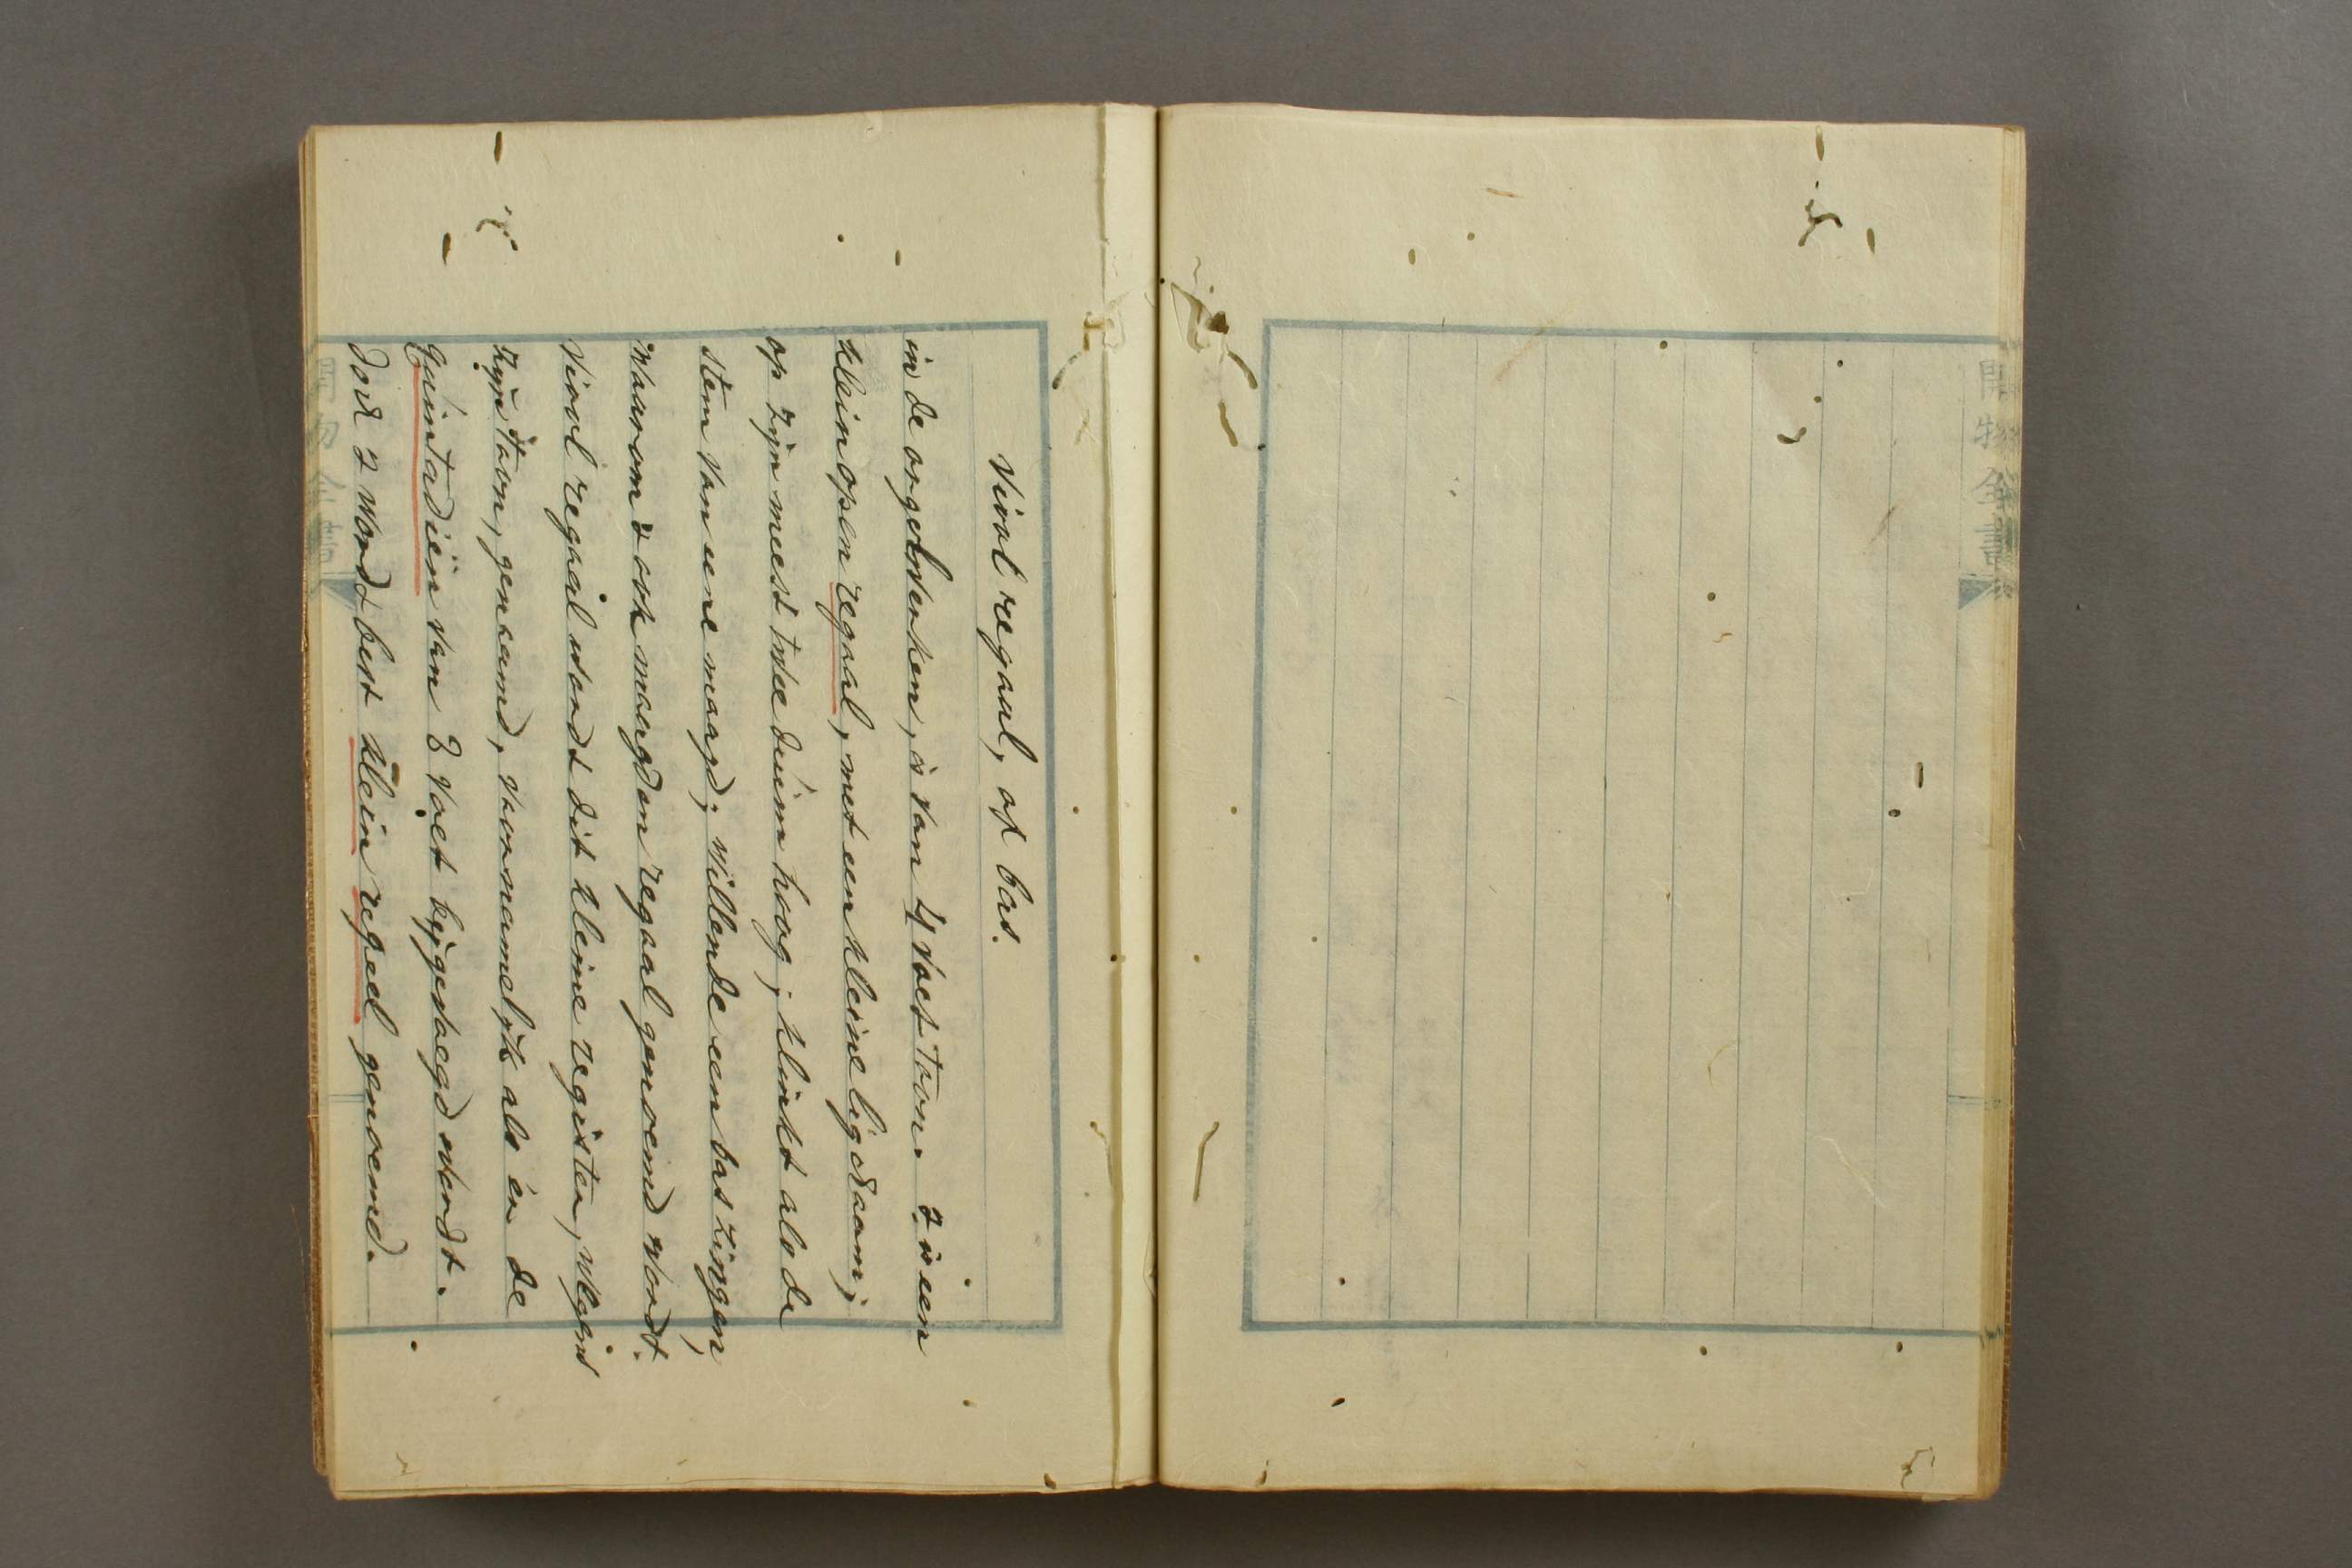 Viool regaal, of bas.
in de orgelwerken, is van 4 Voet toon. 't is een
klein open regaal, met een kleine ligchaam;
op zijn meest twee duim hoog; klinkt als de
stem van eene maagd; willende een bas zingen,
waarom 't ook maagden regaal genoemd wordt.
Viool regaal wordt dit kleine register, wegens
zijn toon, genaamd, voornamelijk als èr de
Quintadien van 8 Voet bijgevoegd wordt.
door 't wordt best klein regaal genoemd.
開物全書
開物全書